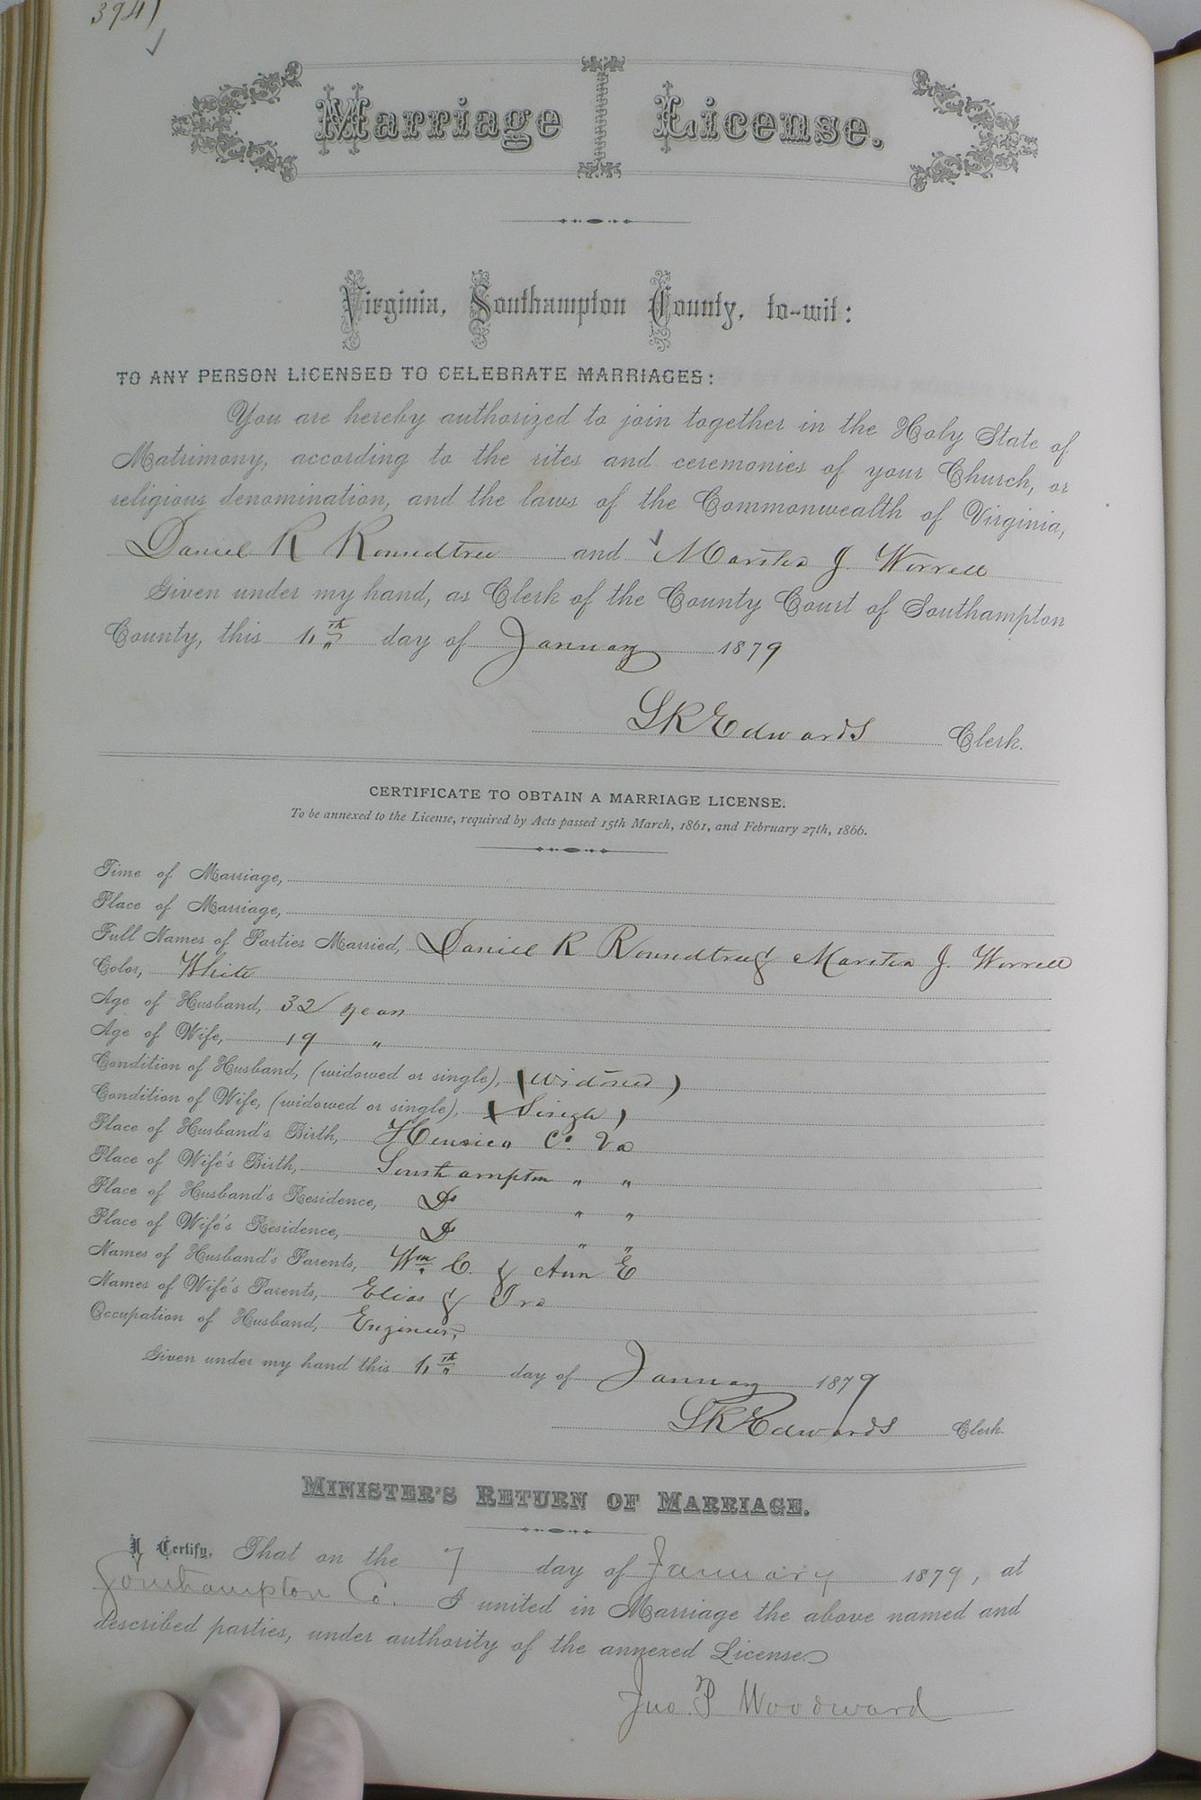 394
Marriage License.
Virginia, Southampton County, to-wit:
TO ANY PERSON LICENSED TO CELEBRATE MARRIAGES:
You are hereby authorized to join together in the Holy State of
Matrimony, according to the rites and ceremonies of your Church, or
religious denomination, and the laws of the Commonwealth of Virginia,
Daniel R Roundtree and Martha J. Worrell
Given under my hand, as Clerk of the County Court of Southampton
County, this 6th day of January 1879
L R Edwards Clerk.
CERTIFICATE TO OBTAIN A MARRIAGE LICENSE.
To be annexed to the License, required by Acts passed 15th March, 1861, and February 27th, 1866.
Time of Marriage,
Place of Marriage,
Full Names of Parties Married, Daniel R Roundtree & Martha J. Worrell
Color, White
Age of Husband, 32 years
Age of Wife, 19 "
Condition of Husband, (widowed or single), (Widowed)
Condition of Wife, (widowed or single), (Single)
Place of Husband's Birth, Henrico Co. Va
Place of Wife's Birth, Southampton " "
Place of Husband's Residence, Do " "
Place of Wife's Residence, Do " "
Names of Husband's Parents, Wm C. & Ann E
Names of Wife's Parents, Elias & Ira
Occupation of Husband, Engineer,
Given under my hand this 6th day of January 1879
L R Edwards Clerk
MINISTER'S RETURN OF MARRIAGE.
I Certify, That on the 7 day of January 1879, at
Southampton Co. I united in Marriage the above named and
described parties, under authority of the annexed License
Jno. P Woodward